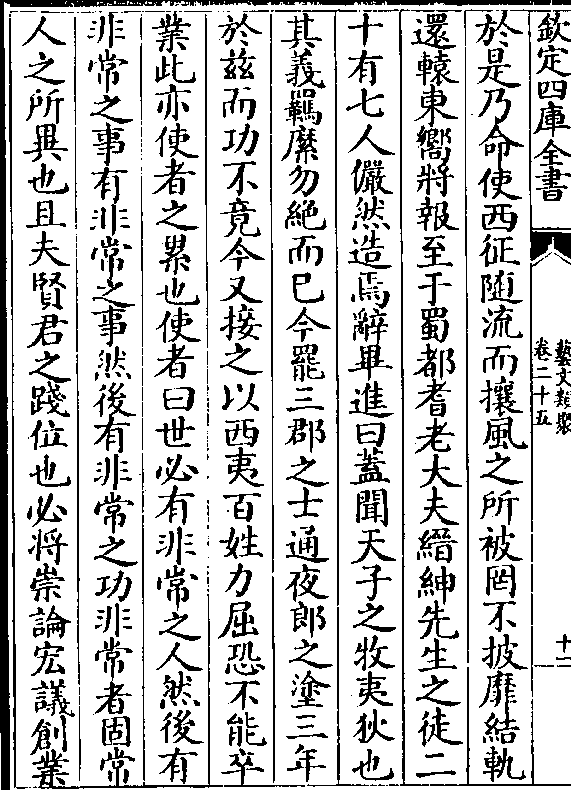 欽定四庫全書
藝文類聚
卷二十五
十一
於是乃命使西征隨流而攘風之所被罔不披靡結軌
還轅東嚮將報至于蜀都耆老大夫縉紳先生之徒二
十有七人儼然造焉辭畢進曰蓋聞天子之牧夷狄也
其義羈縻勿絕而已今罷三郡之士通夜郎之塗三年
於兹而功不竟今又接之以西夷百姓力屈恐不能卒
業此亦使者之累也使者曰世必有非常之人然後有
非常之事有非常之事然後有非常之功非常者固常
人之所異也且夫賢君之踐位也必將崇論宏議創業